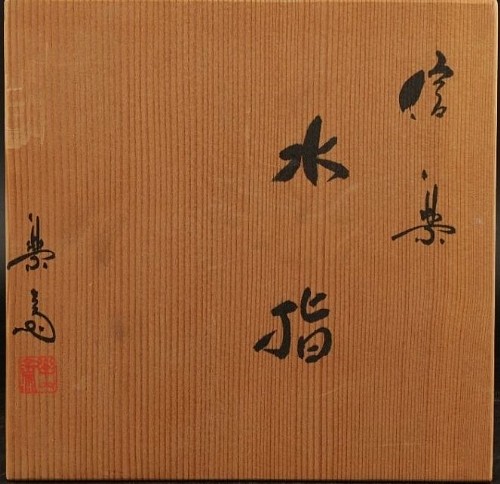 信楽
水指
楽斎